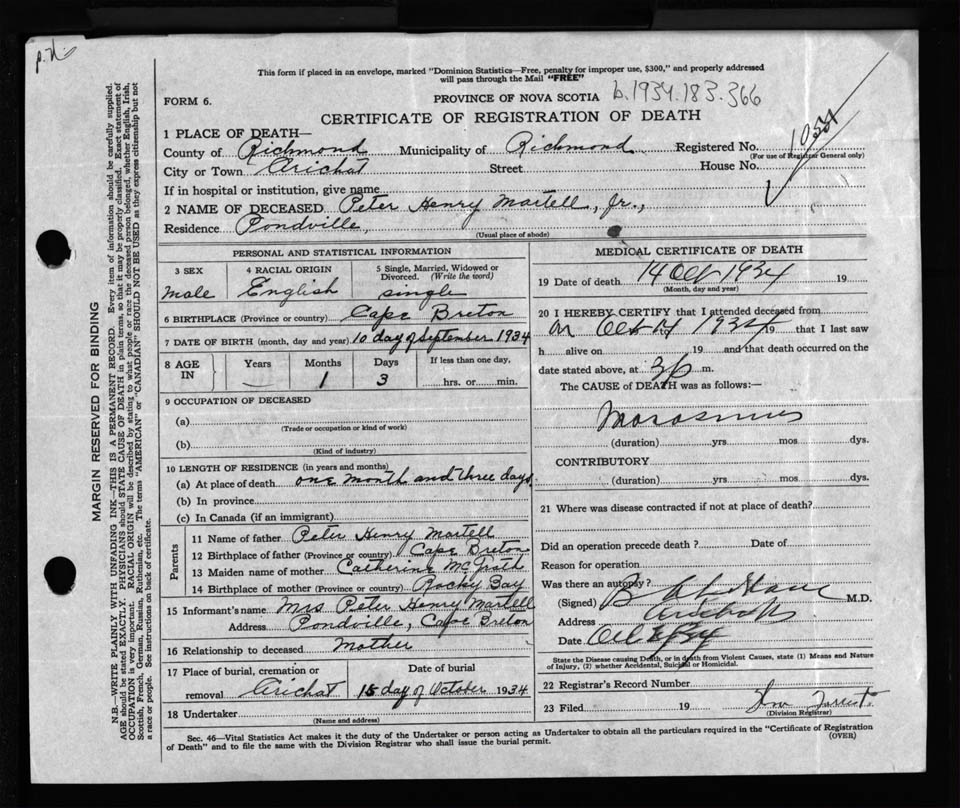 p.n.
This form if placed in an envelope, marked "Dominion Statistics—Free, penalty for improper use, $300," and properly addressed
will pass through the Mail "FREE"
FORM 6.
PROVINCE OF NOVA SCOTIA
b.1934.183.366
CERTIFICATE OF REGISTRATION OF DEATH
1 PLACE OF DEATH—
County of Richmond Municipality of Richmond Registered No.
(For use of Registrar General only)
City or Town Arichat Street House No.
If in hospital or institution, give name
2 NAME OF DECEASED Peter Henry Martell, Jr.,
Residence Pondville,
(Usual place of abode)
PERSONAL AND STATISTICAL INFORMATION
3 SEX 4 RACIAL ORIGIN 5 Single, Married, Widowed or
Divorced. (Write the word)
male English single
6 BIRTHPLACE (Province or country) Cape Breton
7 DATE OF BIRTH (month, day and year) 10 day of September 1934
8 AGE IN Years Months Days If less than one day,
1 3 hrs. or min.
9 OCCUPATION OF DECEASED
(a)
(Trade or occupation or kind of work)
(b)
(Kind of industry)
10 LENGTH OF RESIDENCE (in years and months)
(a) At place of death one month and three days
(b) In province
(c) In Canada (if an immigrant)
Parents
11 Name of father Peter Henry Martell
12 Birthplace of father (Province or country) Cape Breton
13 Maiden name of mother Catherine McGrath
14 Birthplace of mother (Province or country) Rocky Bay
15 Informant's name Mrs Peter Henry Martell
Address Pondville, Cape Breton
16 Relationship to deceased Mother
17 Place of burial, cremation or Date of burial
removal Arichat 15 day of October 1934
18 Undertaker
(Name and address)
MEDICAL CERTIFICATE OF DEATH
19 Date of death 14 Oct 1934 19
(Month, day and year)
20 I HEREBY CERTIFY that I attended deceased from
on Oct 14 to 1934 19 that I last saw
h alive on 19 and that death occurred on the
date stated above, at 3 p m.
The CAUSE of DEATH was as follows:—
Marasmus
(duration) yrs mos dys.
CONTRIBUTORY
(duration) yrs mos dys.
21 Where was disease contracted if not at place of death?
Did an operation precede death ? Date of
Reason for operation
Was there an autopsy?
(Signed) M.D.
Address Arichat
Date Oct
State the Disease causing Death, or in death from Violent Causes, state (1) Means and Nature
of Injury, (2) whether Accidental, Suicidal or Homicidal.
22 Registrar's Record Number
23 Filed 19
(Division Registrar)
Sec. 46—Vital Statistics Act makes it the duty of the Undertaker or person acting as Undertaker to obtain all the particulars required in the "Certificate of Registration
of Death" and to file the same with the Division Registrar who shall issue the burial permit.
(OVER)
MARGIN RESERVED FOR BINDING
N.B.—WRITE PLAINLY WITH UNFADING INK—THIS IS A PERMANENT RECORD. Every item of information should be carefully supplied.
AGE should be stated EXACTLY. PHYSICIANS should STATE CAUSE OF DEATH in plain terms, so that it may be properly classified. Exact statement of
OCCUPATION is very important. RACIAL ORIGIN will be described by stating to what people or race the deceased person belonged, whether English, Irish,
Scottish, French, German, Russian, Ruthenian, etc. The terms "AMERICAN" or "CANADIAN" SHOULD NOT BE USED as they express citizenship but not
a race or people. See instructions on back of certificate.